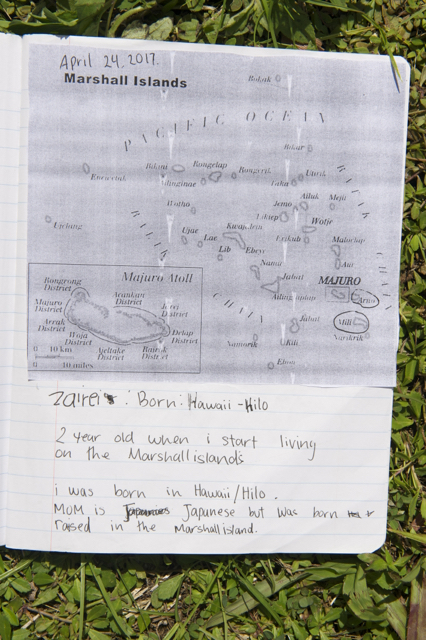 April 24, 2017.
Marshall Islands
Bokak
PACIFIC OCEAN
Bikar
Bikini
Rongelap
Rongerik
Utirik
Enewetak
Taka
Ailinginae
Ailuk
Mejit
Jemo
Wotho
Likiep
Wotje
Ujelang
Kwajalein
Ujae
Lae
Erikub
Maloelap
Ebeye
Lib
Aur
Namu
Jabat
MAJURO
Majuro Atoll
Ailinglaplap
Arno
Rongrong
District
Majuro
District
Jaluit
Mili
Delap
District
Woja
District
Kili
Narikrik
10 km
Ajeltake
District
Rairok
District
Namorik
10 miles
Ebon
Born: Hawaii - Hilo
2 year old when i start living
on the Marshall islands
i was born in Hawaii/Hilo.
MOM is Japanese but was born
raised in the Marshall island.